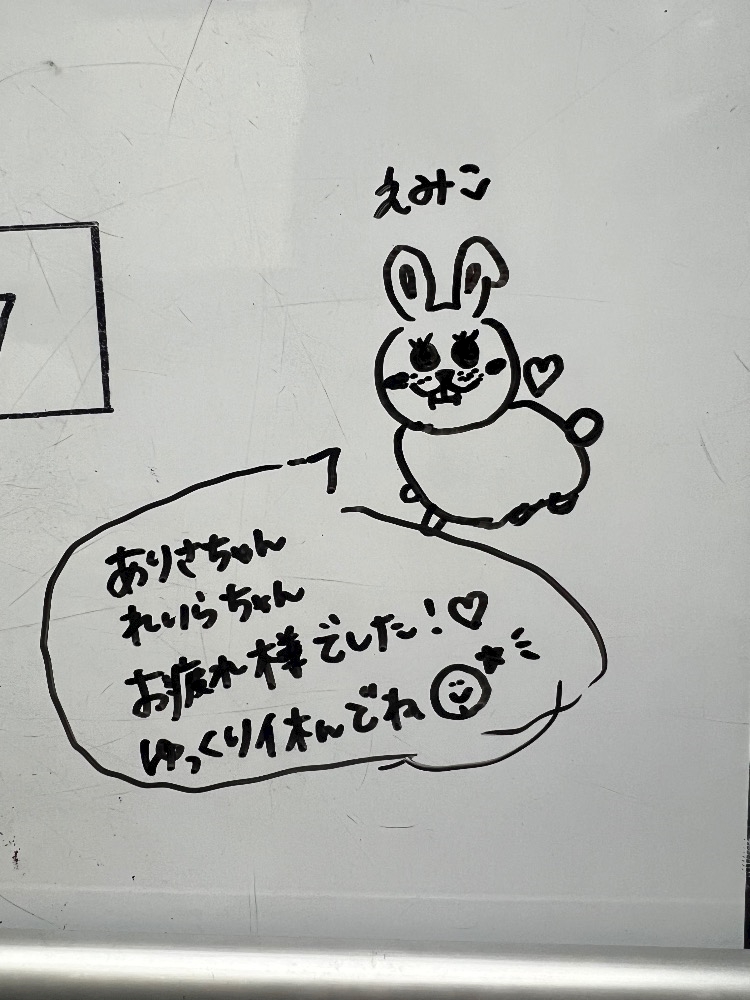 えみこ
ありさちゃん
れいらちゃん
お疲れ様でした！♡
ゆっくり休んでね